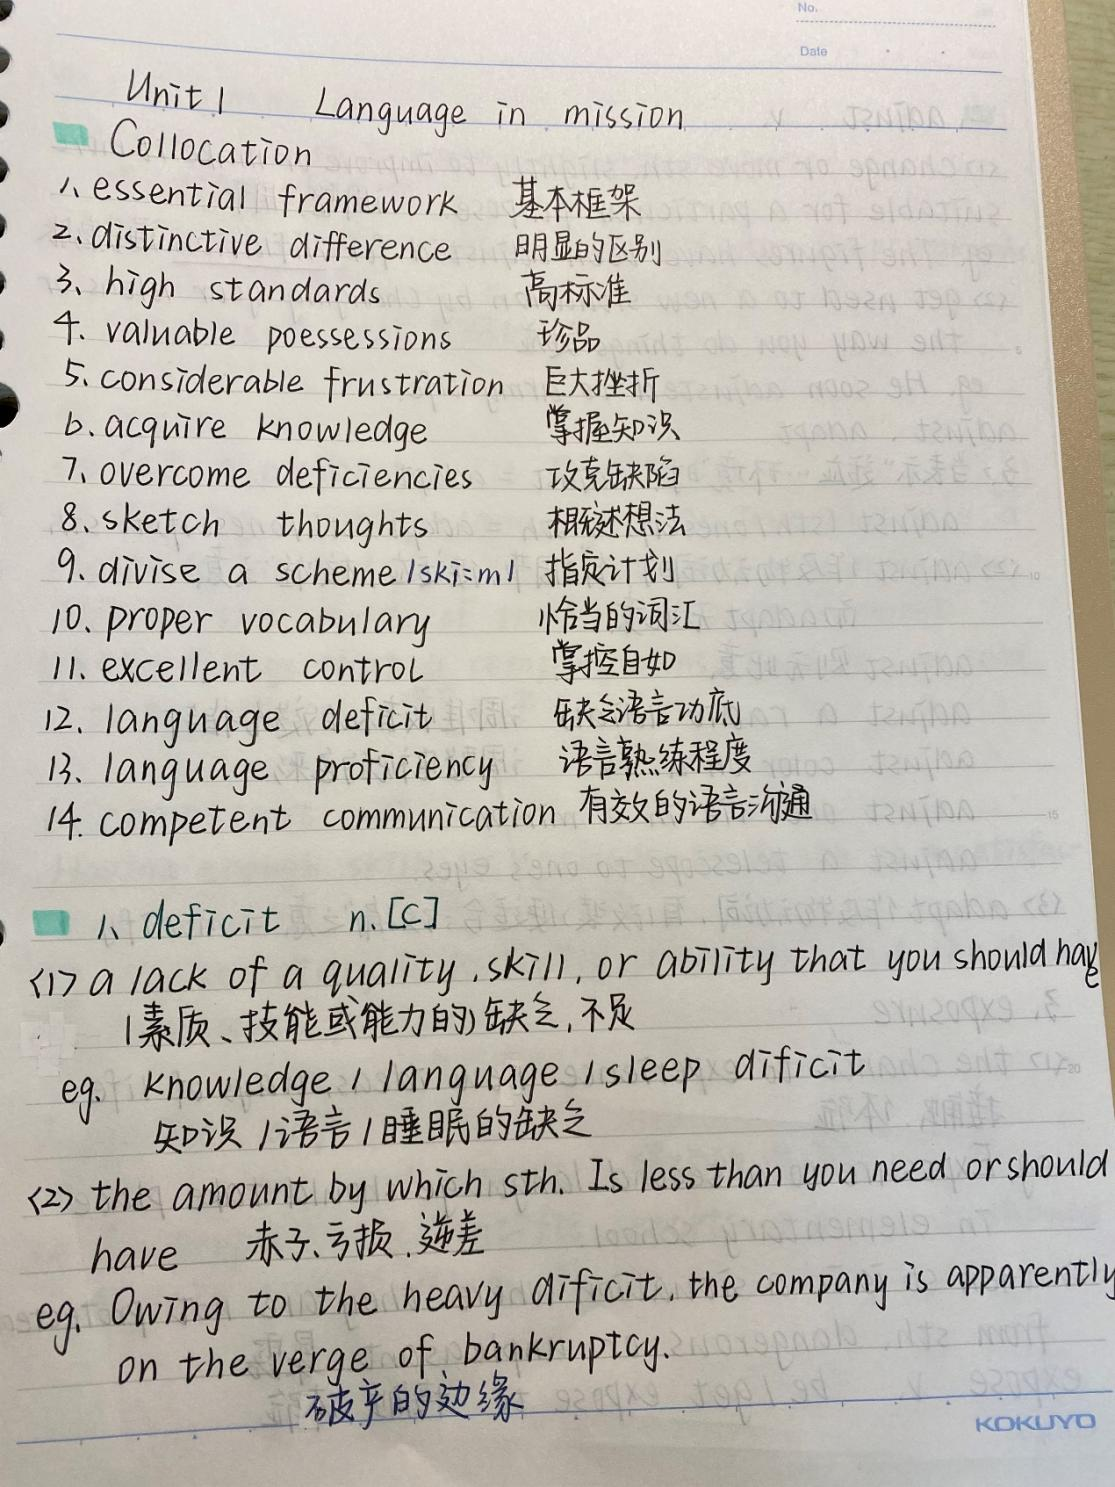 No.
Date
Unit 1 Language in mission
Collocation
1、essential framework 基本框架
2、distinctive difference 明显的区别
3、high standards 高标准
4. valuable poessessions 珍品
5. considerable frustration 巨大挫折
6. acquire knowledge 掌握知识
7. overcome deficiencies 攻克缺陷
8. sketch thoughts 概述想法
9. divise a scheme /ski:m/ 指定计划
10. proper vocabulary 恰当的词汇
11. excellent control 掌控自如
12. language deficit 缺乏语言功底
13. language proficiency 语言熟练程度
14. competent communication 有效的语言沟通
1、deficit n. [C]
<1> a lack of a quality, skill, or ability that you should have
(素质、技能或能力的)缺乏,不足
eg. knowledge / language / sleep dificit
知识 / 语言 / 睡眠的缺乏
<2> the amount by which sth. Is less than you need or should
have 赤字、亏损、逆差
eg. Owing to the heavy dificit, the company is apparently
on the verge of bankruptcy.
破产的边缘
KOKUYO